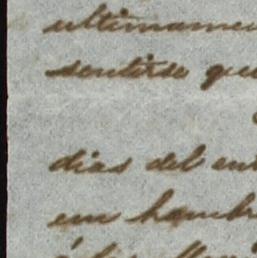 ultimamen
sentirse que
dias del ent
un hombr